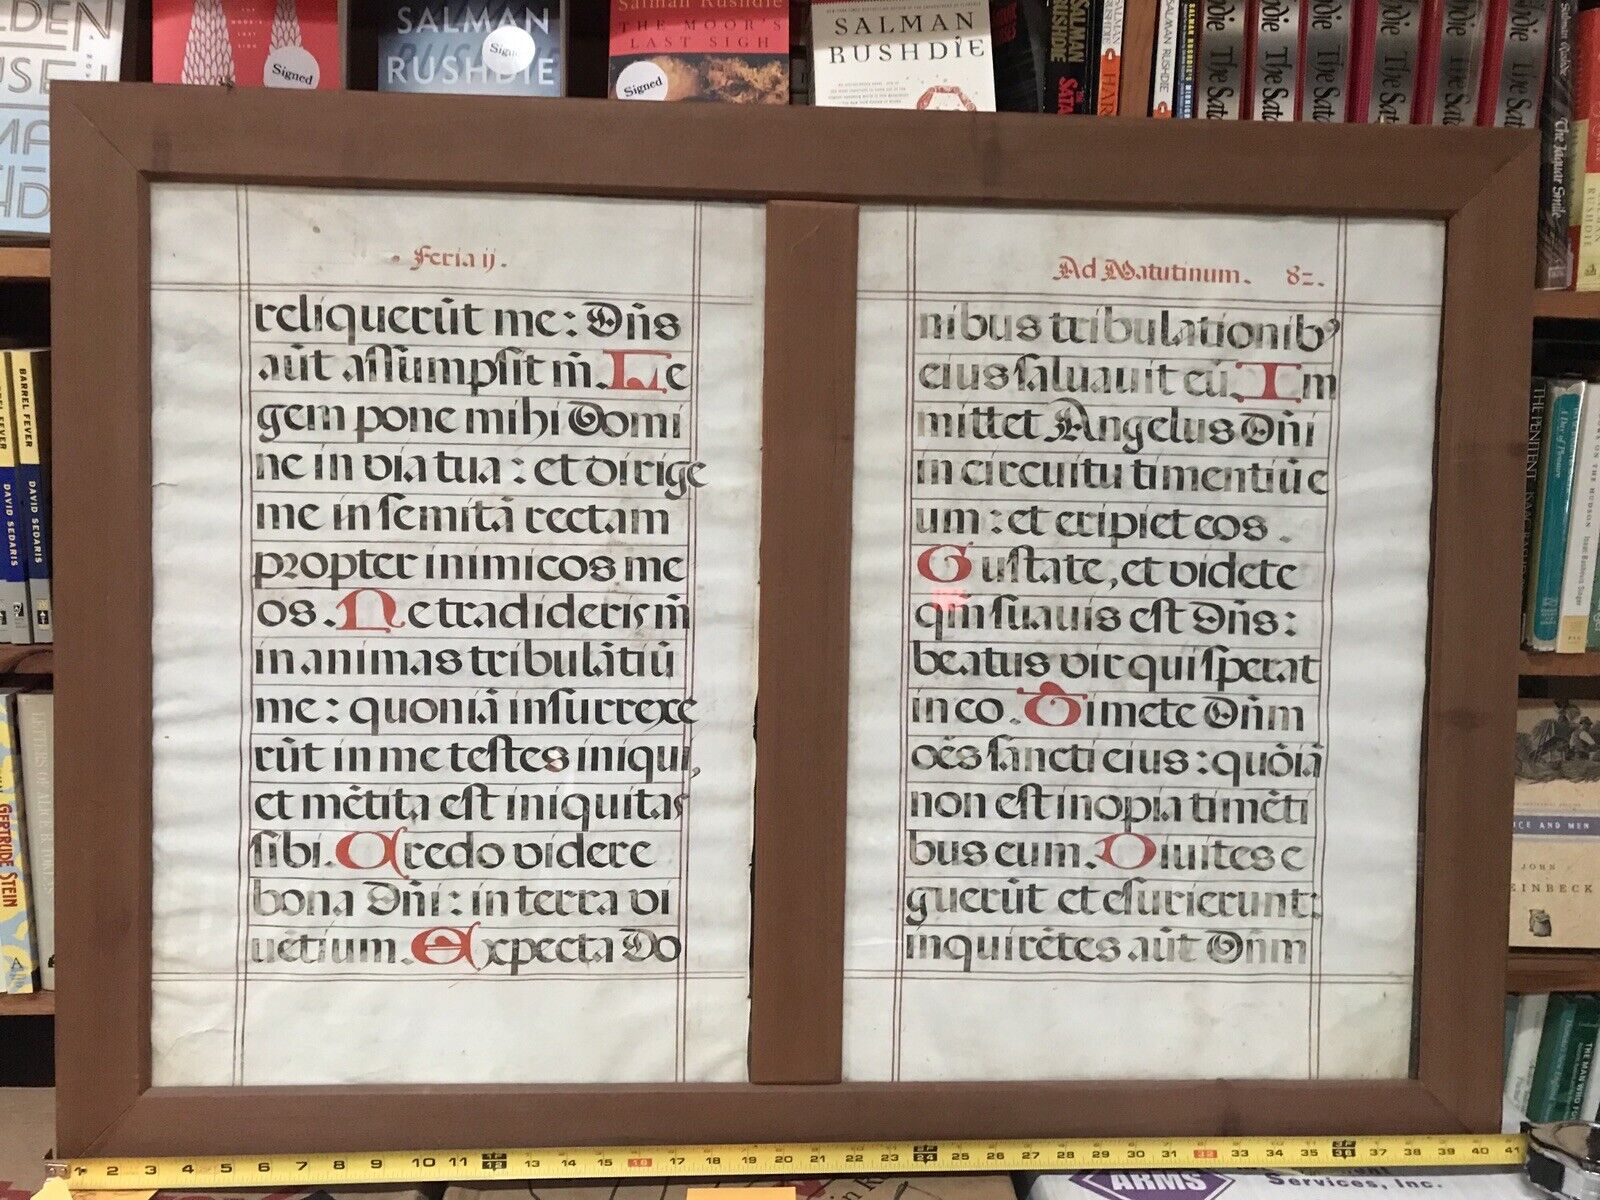 SALMAN
RUSHDIE
Signed
Signed
Salman Rushdie
THE MOOR'S
LAST SIGH
Signed
SALMAN
RUSHDIE
The Jaguar Smile
BARREL FEVER
DAVID SEDARIS
DAVID SEDARIS
GERTRUDE STEIN
. Feria ij .
reliquerūt me: Dn̄s
aūt aſſūmpſit m̄. Le
gem pone mihi Domi
ne in via tua: et dirige
me in ſemitā rectam
propter inimicos me
os. Ne tradideris m̄
in animas tribulātiū
me: quoniā inſurrexe
rūt in me teſtes iniqui,
et mētita eſt iniquitas
ſibi. Credo videre
bona Dn̄i: in terra vi
uētium. Expecta Do
Ad Matutinum. 82.
nibus tribulationibꝰ
eius ſaluauit eū. Im
mittet Angelus Dn̄i
in circuitu timentiū e
um: et eripiet eos.
Guſtate, et videte
qm̄ ſuauis eſt Dn̄s:
beatus vir qui ſperat
in eo. Timete Dn̄m
oēs ſancti eius: quōiā
non eſt inopia timēti
bus eum. Diuites e
guerūt et eſurierunt:
inquirētes aūt Dn̄m
1 2 3 4 5 6 7 8 9 10 11 12 13 14 15 16 17 18 19 20 21 22 23 24 25 26 27 28 29 30 31 32 33 34 35 36 37 38 39 40 41
ARMS
Services, Inc.